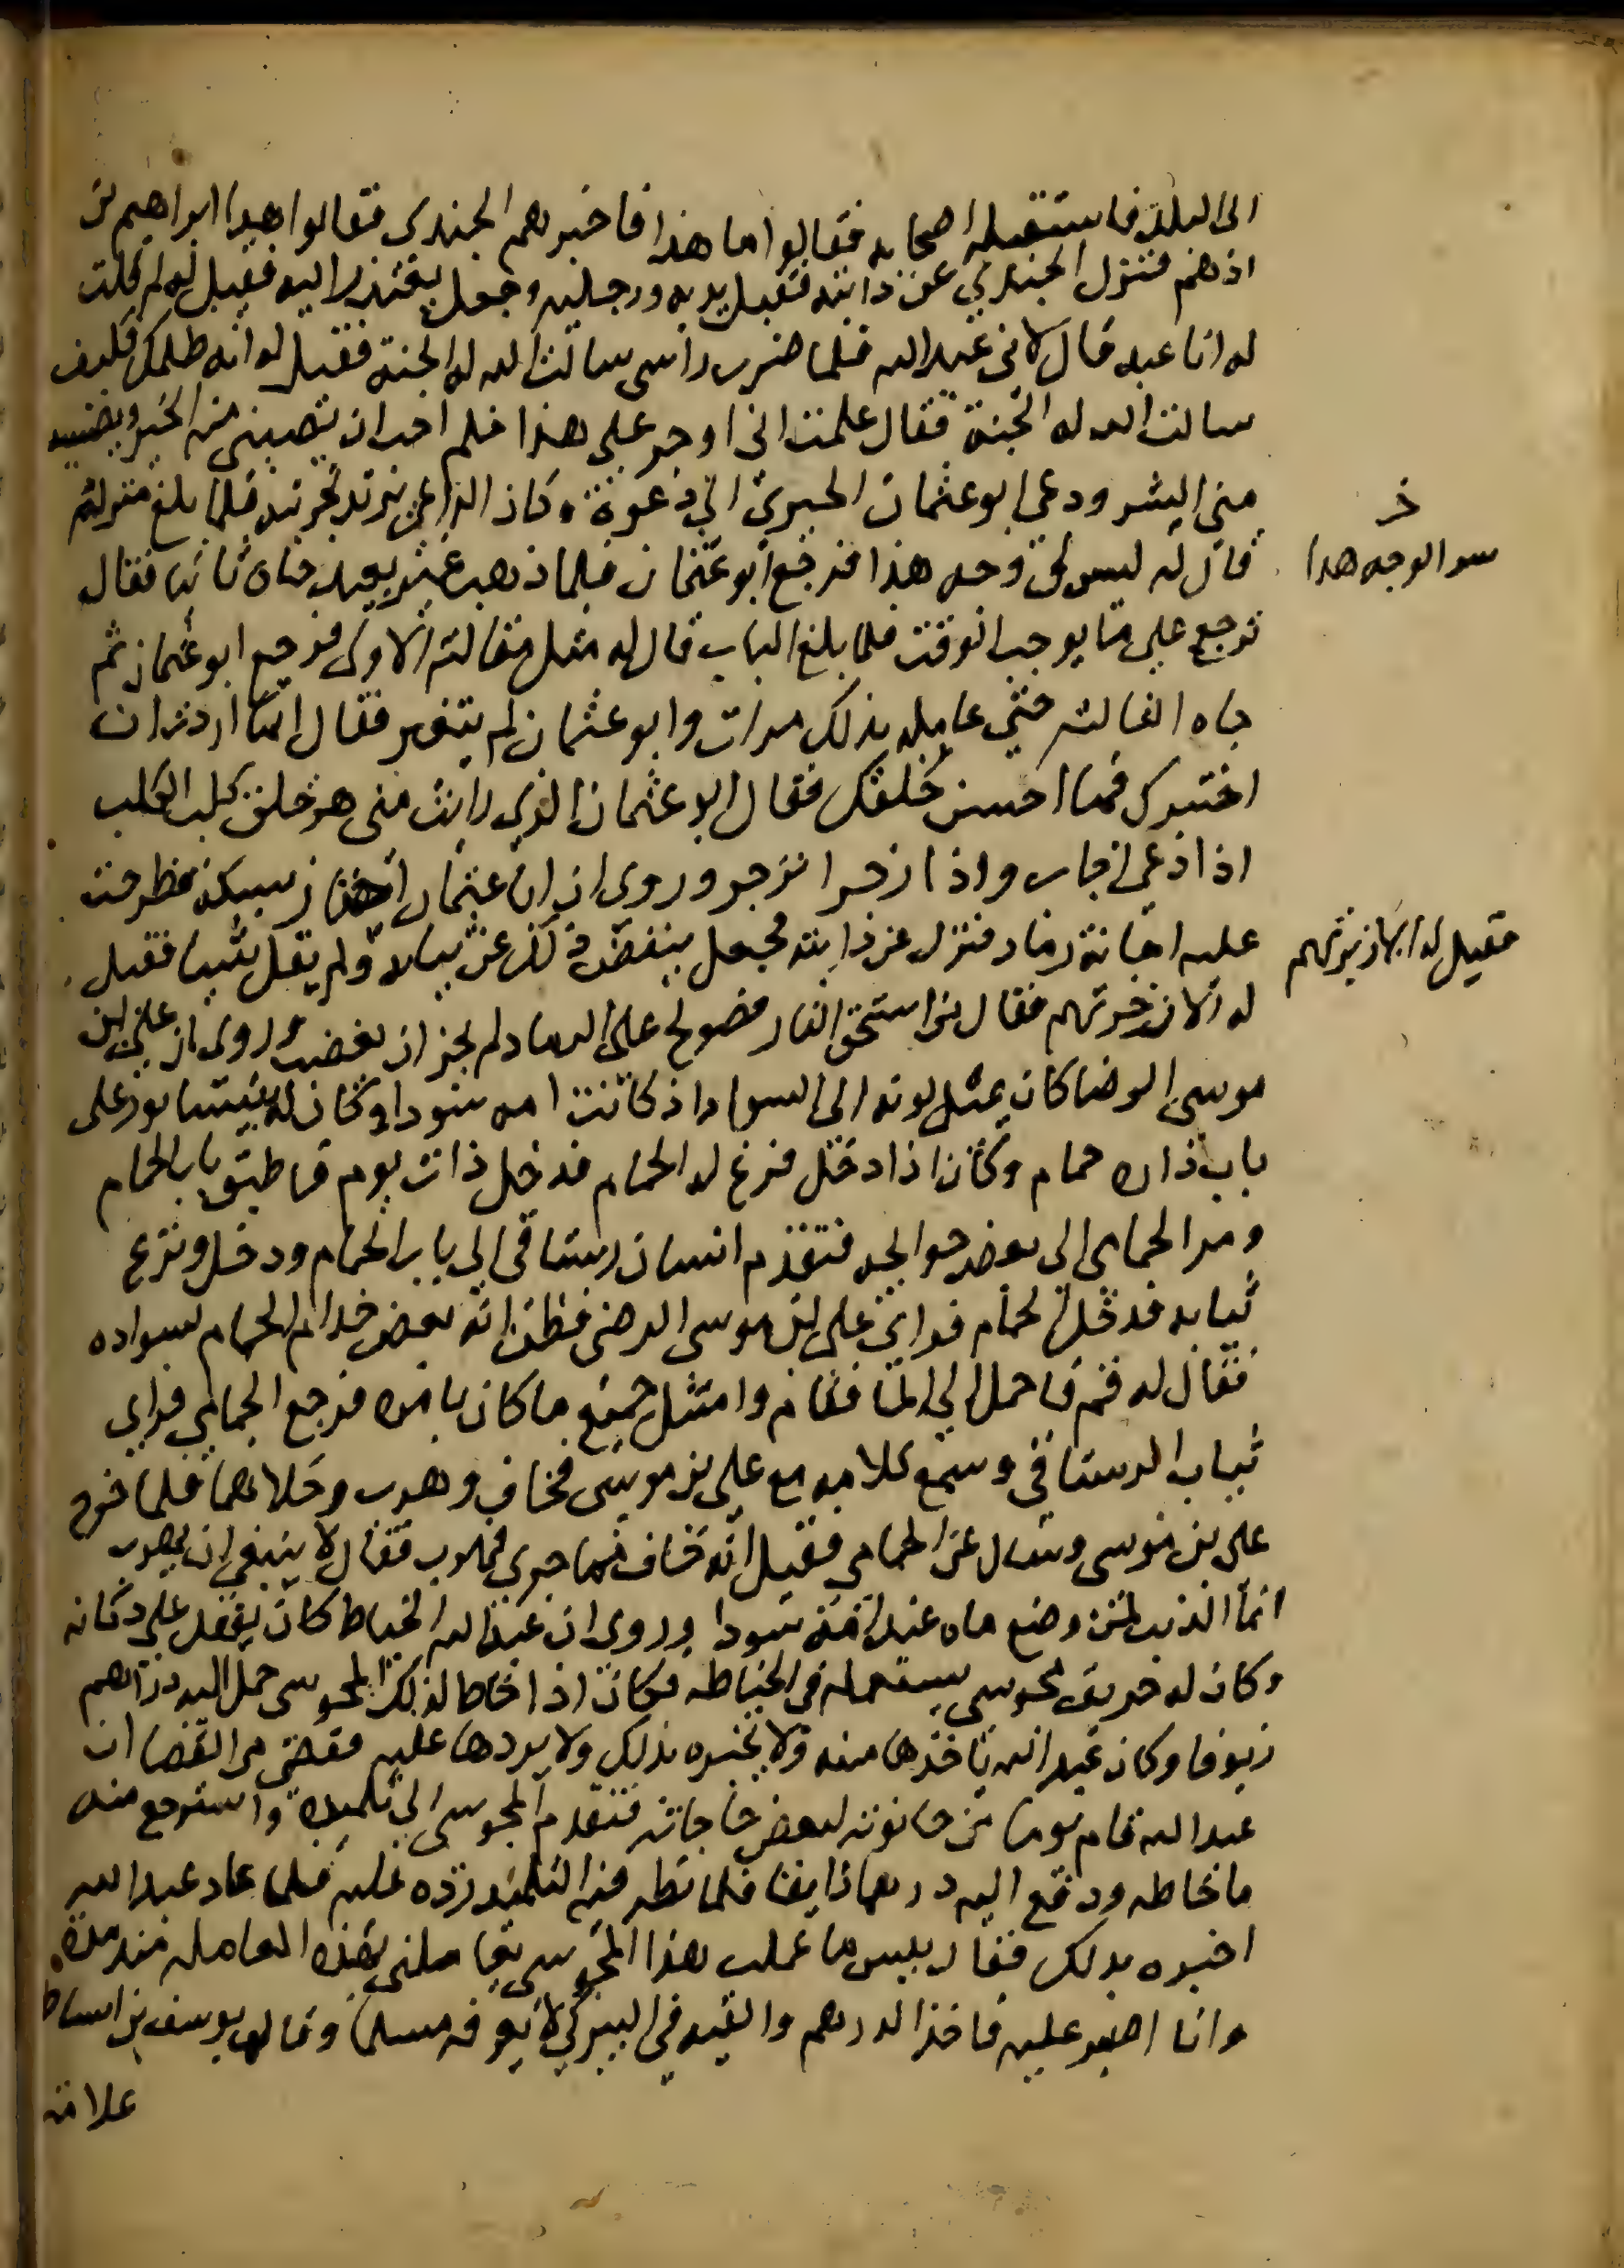 الى البلد فاستقبله اصحابه فقالوا ما هذا فاخبرهم الجندي فقالوا هذا ابراهيم بن
ادهم فنزل الجندي عن دابته فقبل يديه ورجليه وجعل يعتذر اليه فقيل له لم قلت
له انا عبد قال لاني عبد الله فلما ضرب راسي سالت الله له الجنة فقيل له انه ظلمك فكيف
سالت الله له الجنة فقال علمت اني اوجر على هذا فلم احب ان تصيبني منه الخير ويصيبه
مني الشر ودعي ابو عثمان الحيري الى دعوة وكان الداعي يريد تجربته فلما بلغ منزله
قال له ليس لي وجه هذا فرجع ابو عثمان فلما ذهب غير بعيد جاه ثانيا فقال
خـ
سو الوجه هدا
ترجع على ما يوجب الوقت فلما بلغ الباب قال له مثل مقالته الاولى فرجع ابو عثمان ثم
جاه الثالثه حتى عامله بذلك مرات وابو عثمان لم يتغير فقال انما اردت ان
اختبرك فما احسن خلقك فقال ابو عثمان الذي رايت مني هو خلق كلب الكلب
اذا دعي اجاب واذا زجر انزجر وروى ان ابا عثمان اجتاز بسكة فطرحت
عليه اجانة رماد فنزل عن دابته فجعل ينفض ذلك عن ثيابه ولم يقل شيا فقيل
فقيل له الا زبرتهم
له الا زجرتهم فقال من استحق النار فصولح على الرماد لم يجز ان يغضب وروى ان علي بن
موسى الرضا كان يميل لونه الى السواد اذ كانت امه سودا وكان له بنيسابور على
باب داره حمام وكان اذا دخل فرغ له الحمام فدخل ذات يوم فاطبق باب الحمام
ومر الحمامي الى بعض حوايجه فتقدم انسان رستاقي الى باب الحمام ودخل ونزع
ثيابه فدخل الحمام فراي علي بن موسى الرضى فظن انه بعض خدام الحمام لسواده
فقال له قم فاحمل الي الما فقام وامتثل جميع ما كان يامره فرجع الحمامي فراى
ثياب الرستاقي وسمع كلامه مع علي بن موسى فخاف وهرب وخلاهما فلما خرج
علي بن موسى وسال عن الحمامي فقيل انه خاف مما جرى فهرب فقال لا ينبغي ان يهرب
انما الذنب لمن وضع ماه عند امة سودا وروى ان عبد الله الخياط كان يقعد على دكانه
وكان له حريف مجوسي يستعمله في الخياطه فكان اذا خاط لذلك المجوسى حمل اليه دراهم
زيوفا وكان عبد الله ياخذها منه ولا يخبره بذلك ولا يردها عليه فقضي من القضا ان
عبد الله قام يوما من حانوته لبعض حاجاته فتقدم المجوسى الى تلميذه واسترجع منه
ما خاطه ودفع اليه درهما زايفا فلما نظر فيه التلميذ رده عليه فلما عاد عبد الله
اخبره بذلك فقال بيس ما عملت هذا المجوسي يعاملني بهذه المعامله منذ مدة
وانا اصبر عليه فاخذ الدرهم والقيه في البير كي لا يعر فه مسلما وقال يوسف بن اسباط
علامة